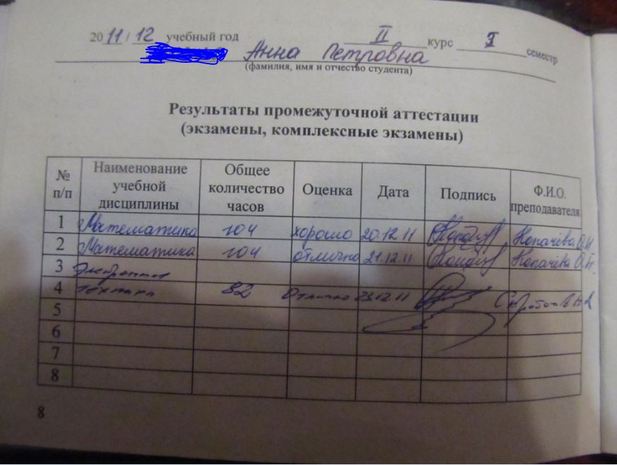 2011/12 учебный год II курс I семестр
Анна Петровна
(фамилия, имя и отчество студента)
Результаты промежуточной аттестации
(экзамены, комплексные экзамены)
№ п/п Наименование учебной дисциплины Общее количество часов Оценка Дата Подпись Ф.И.О. преподавателя
1 Математика 104 хорошо 20.12.11 Копачёва
2 Математика 104 отлично 21.12.11 Копачёва
3
4 техника 82 отлично 23.12.11
5
6
7
8
8